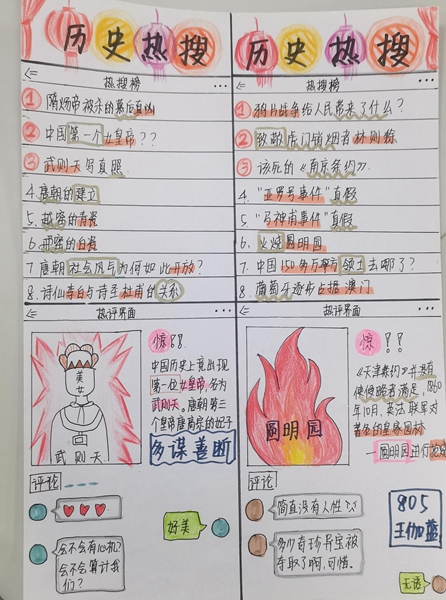 历史热搜
热搜榜
1 隋炀帝被杀的幕后真凶
2 中国第一个女皇帝??
3 武则天写真照.
4.唐朝的建立
5.越窑的青瓷
6.邢窑的白瓷
7.唐朝社会风气为何如此开放?
8.诗仙李白与诗圣杜甫的关系
热评界面
美女
武则天
惊!!
中国历史上竟出现
第一位女皇帝,名为
武则天。唐朝第三
个皇帝唐高宗的妃子
多谋善断
评论
好美
会不会有心机?
会不会算计我
们?
历史热搜
热搜榜
1 鸦片战争给人民带来了什么?
2 致敬虎门销烟者林则徐
3 该死的《南京条约》.
4."亚罗号事件"真假
5."马神甫事件"真假
6.火烧圆明园
7.中国150多万平方领土去哪了?
8.葡萄牙逐步占据澳门
热评界面
圆明园
惊!!
《天津条约》并没有
使侵略者满足,1860
年10月,英法联军对
著名的皇家园林
—圆明园进行抢掠
评论
简直没有人性
多少奇珍异宝被
夺取了啊,可惜.
805
王伽蓝
无语